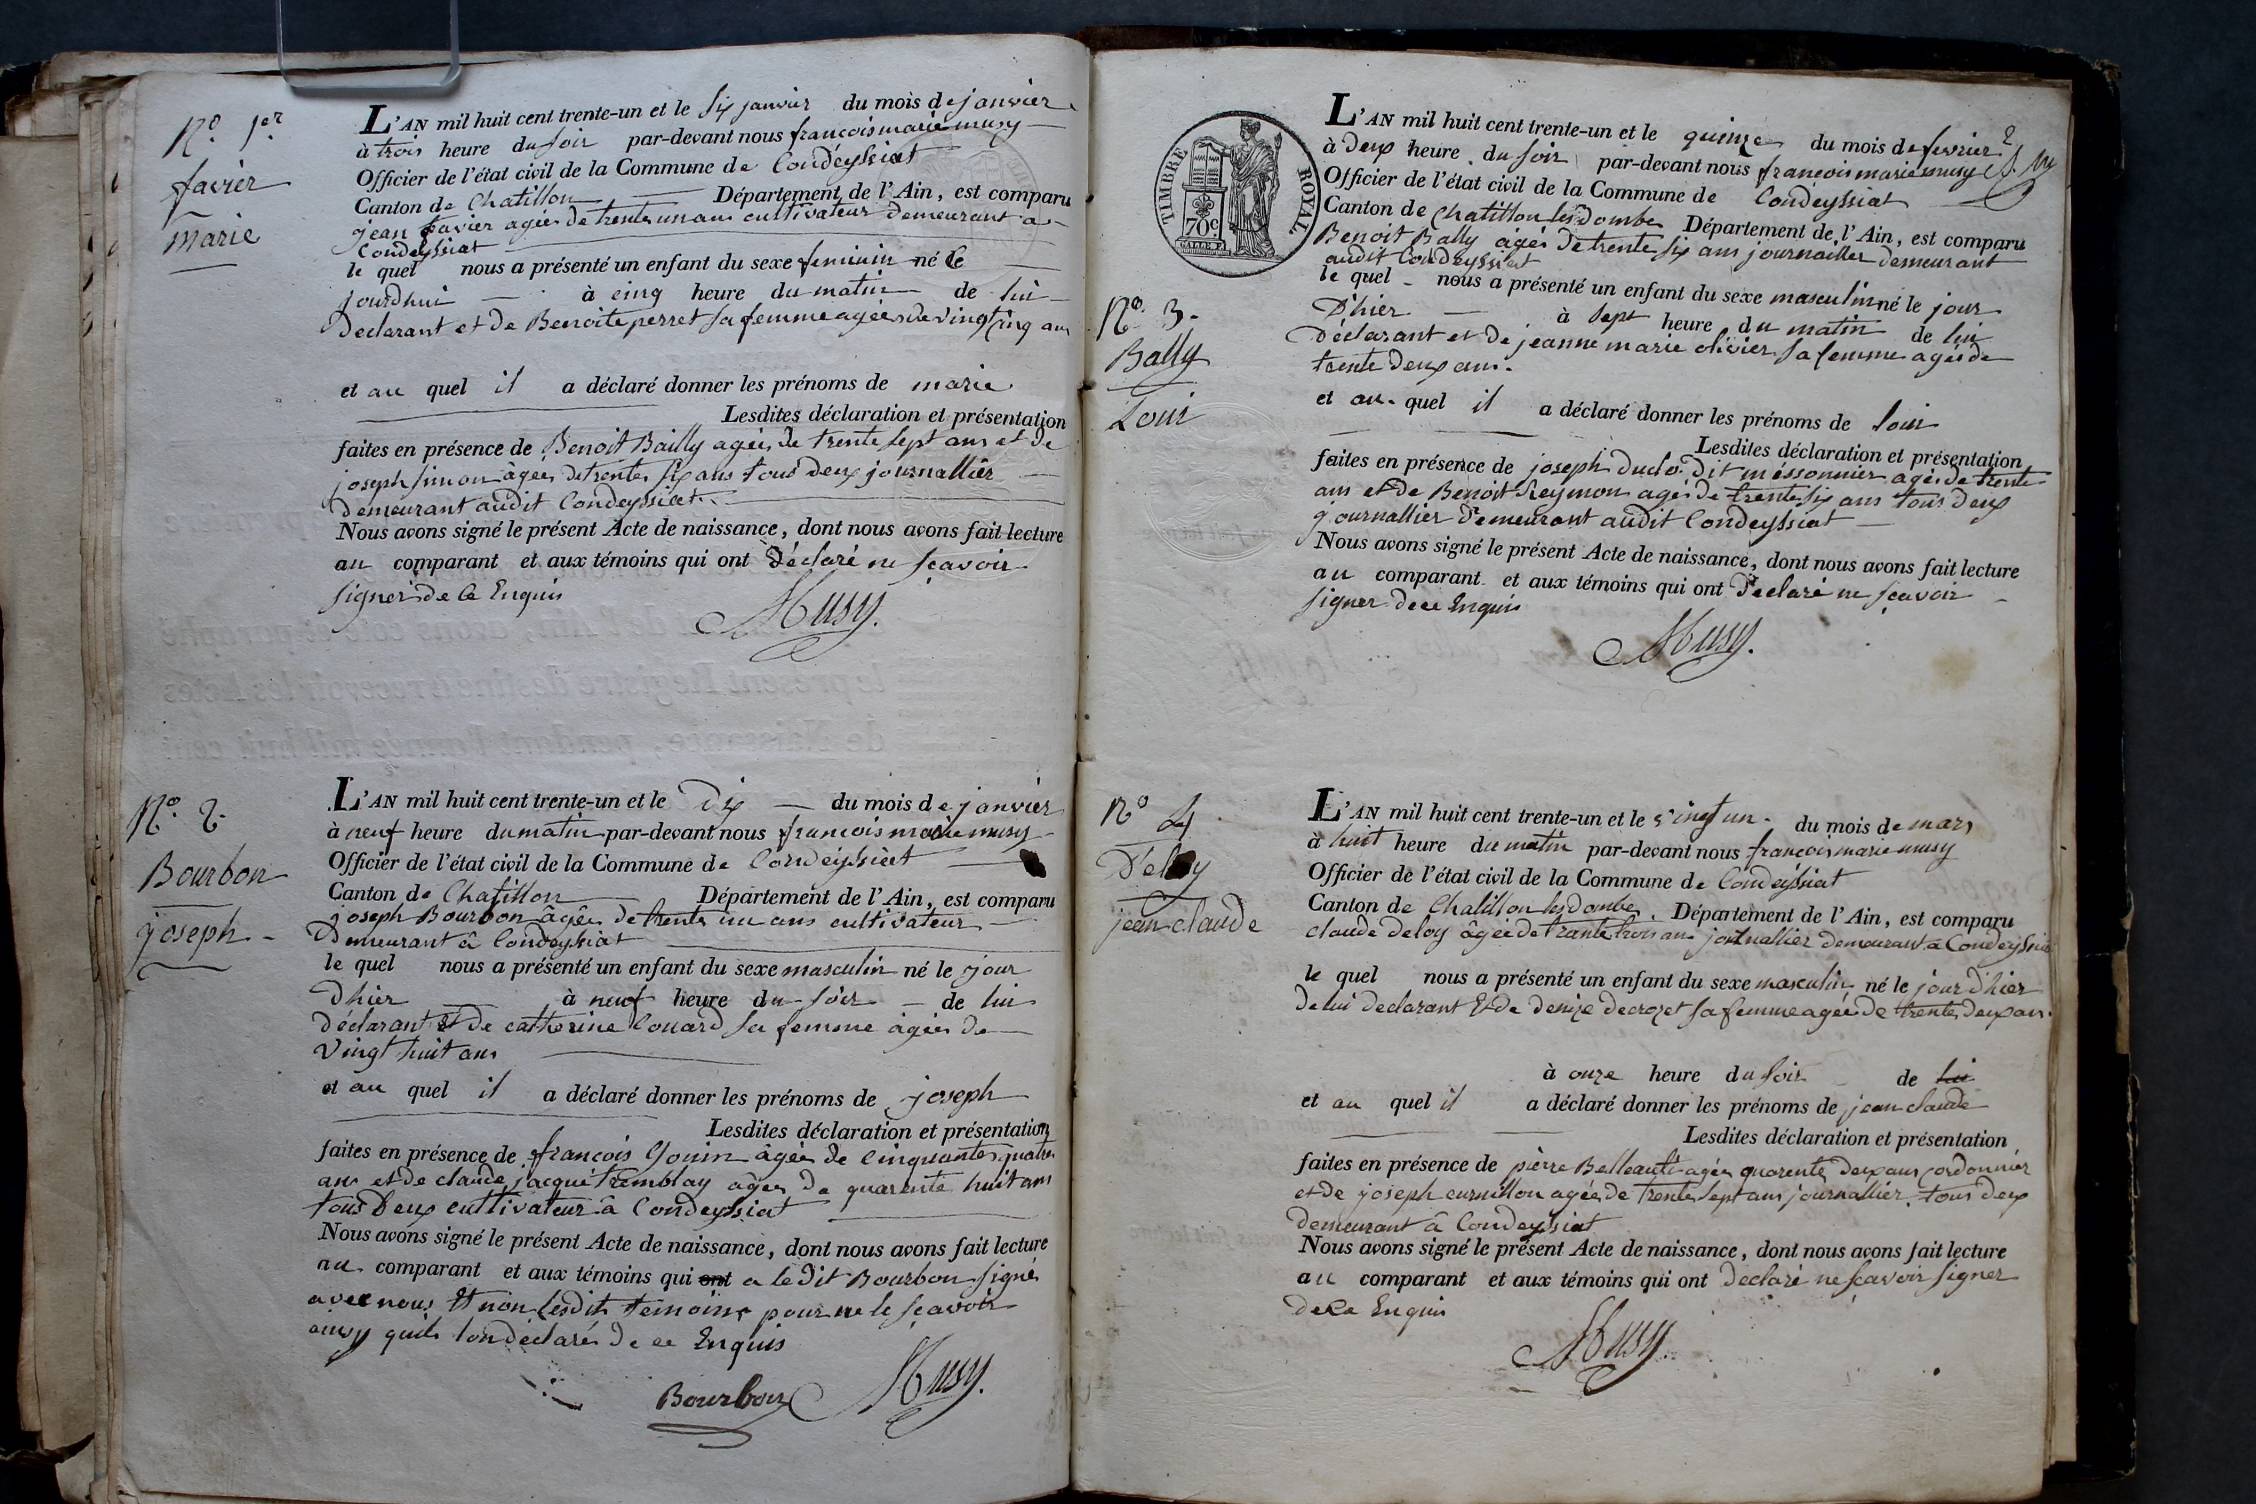 N.o 1er
favier
marie
L'AN mil huit cent trente-un et le six janvier du mois de janvier
à trois heure du soir par-devant nous francois marie musy
Officier de l'état civil de la Commune de Condeyssiat
Canton de Chatillon Département de l'Ain, est comparu
jean favier agée de trente un ans cultivateur demeurant a
Condeyssiat
le quel nous a présenté un enfant du sexe feminin né le
jourdhui à cinq heure du matin de lui
declarant et de Benoite perret sa femme agées de vingt cinq ans
et au quel il a déclaré donner les prénoms de marie
Lesdites déclaration et présentation
faites en présence de Benoit Bailly agée de trente sept ans et de
joseph simon âgée de trente six ans tous deux journallier
demeurant audit Condeyssiat
Nous avons signé le présent Acte de naissance, dont nous avons fait lecture
au comparant et aux témoins qui ont déclaré ne sçavoir
signer de ce Enquis
Musy.
N.o 2.
Bourbon
joseph
L'AN mil huit cent trente-un et le dix du mois de janvier
à neuf heure du matin par-devant nous francois marie musy
Officier de l'état civil de la Commune de Condeyssiat
Canton de Chatillon Département de l'Ain, est comparu
joseph Bourbon âgée de trente un ans cultivateur
demeurant â Condeyssiat
le quel nous a présenté un enfant du sexe masculin né le jour
dhier à neuf heure du soir de lui
déclarant et de catherine Couard sa femme âgée de
vingt huit ans
et au quel il a déclaré donner les prénoms de joseph
Lesdites déclaration et présentation
faites en présence de francois Gouin âgée de cinquante quatre
ans et de claude jacque tremblay agée de quarente huit ans
tous deux cultivateur â Condeyssiat
Nous avons signé le présent Acte de naissance, dont nous avons fait lecture
au comparant et aux témoins qui ont a le dit Bourbon signé
avec nous et non lesdits temoins pour ne le sçavoir
ainsy quils l'on déclaré de ce Enquis
Bourbon Musy.
TIMBRE ROYAL
70c
N.o 3.
Bally
Loui
L'AN mil huit cent trente-un et le quinze du mois de fevrier 2
à deux heure du soir par-devant nous francois marie musy
Officier de l'état civil de la Commune de Condeyssiat
Canton de Chatillon les dombe Département de l'Ain, est comparu
Benoit Bally âgée de trente six ans journallier demeurant
audit Condeyssiat
le quel nous a présenté un enfant du sexe masculin né le jour
D'hier à sept heure du matin de lui
déclarant et de jeanne marie olivier sa femme agée de
trente deux ans.
et au quel il a déclaré donner les prénoms de loui
Lesdites déclaration et présentation
faites en présence de joseph duclo dit méssonnier agée de trente
ans et de Benoit Reymon agée de trente six ans tous deux
journallier demeurant audit Condeyssiat
Nous avons signé le présent Acte de naissance, dont nous avons fait lecture
au comparant et aux témoins qui ont déclaré ne sçavoir
signer de ce Enquis
Musy.
N.o 4
Deloy
jean claude
L'AN mil huit cent trente-un et le vingt un du mois de mars
à huit heure du matin par-devant nous francois marie musy
Officier de l'état civil de la Commune de Condeyssiat
Canton de Chatillon les dombe Département de l'Ain, est comparu
claude deloy âgée de trante trois ans journallier demeurant a Condeyssiat
le quel nous a présenté un enfant du sexe masculin né le jour d'hier
de lui declarant et de denize decrozet sa femme agée de trente deux ans
à onze heure du soir de lui
et au quel il a déclaré donner les prénoms de jean claude
Lesdites déclaration et présentation
faites en présence de pierre agée quarente deux ans cordonnier
et de joseph agée de trente sept ans journallier tous deux
demeurant â Condeyssiat
Nous avons signé le présent Acte de naissance, dont nous avons fait lecture
au comparant et aux témoins qui ont declaré ne sçavoir signer
de ce Enquis
Musy.